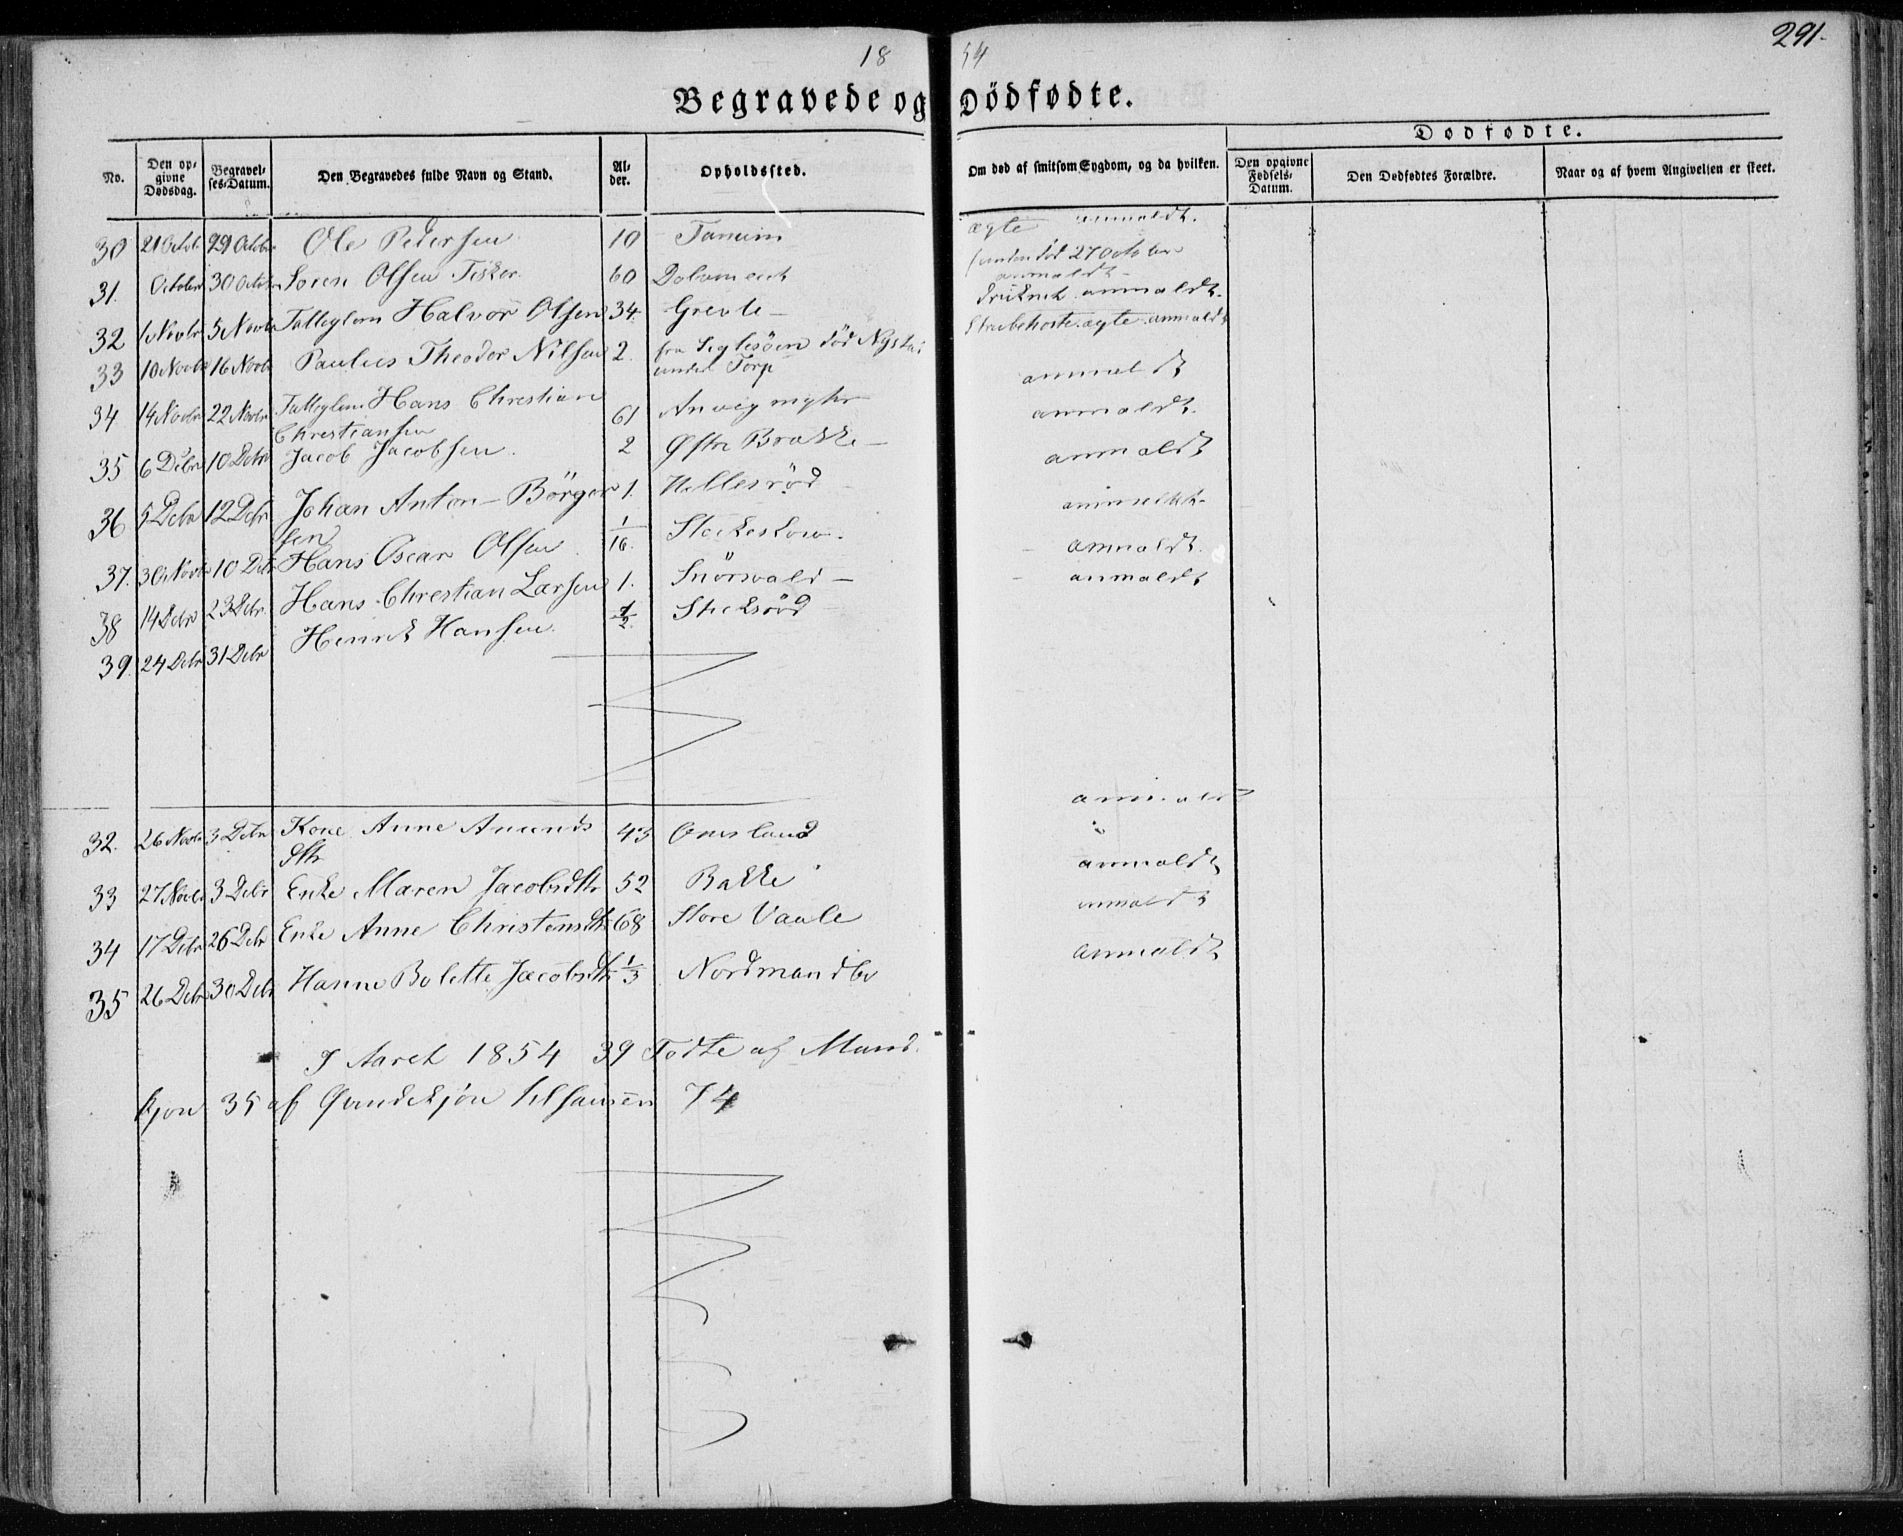 291.
18 54
Begravede og Dödfødte.
No. Den opgivne Dødsdag. Begravelses-Datum. Den Begravedes fulde Navn og Stand. Alder. Opholdssted. Om død af smitsom Sygdom, og da hvilken. Dødfødte. Den opgivne Fødsels-Datum. Den Dødfødtes Forældre. Naar og af hvem Angivelsen er skeet.
30 21 Octob 29 Octobr Ole Pedersen 10 Tanum ægte anmældt.
31. Octobr 30 Octobr Soren Olsen Fisker 60 funden død 27 October anmældt
32 1 Novbr 5 Novbr Halvor Olsen 34 Grevle druknet anmældt.
33 10 Novbr 16 Novbr Paulus Theodor Nilsen 2. fra død under Torp Strubehoste. ægte. anmældt
34 14 Novbr 22 Novbr Hans Christian Christiansen 61 anmeldt
35 6 Debr 10 Debr Jacob Jacobsen. 2 Østre Brække anmældt.
36 5 Debr 12 Debr Johan Anton Börgersen 1. Hellesröd anmældt
37. 30 Novbr 10 Debr Hans Oscar Olsen 1/16.
38 14 Debr 23 Debr Hans Christian Larsen 1. anmældt.
39. 24 Debr 31 Debr Henrik Hansen. 1/2. anmældt
32. 26 Novbr 3 Debr Kone Anne Amunds dtr 43 Omsland anmældt
33 27 Novbr 3 Debr Enke Maren Jacobsdtr 52 Bakke anmældt
34 17 Debr 26 Debr Enke Anne Christensdtr 68 Store Vaale anmældt
35 26 Debr 30 Debr Hanne Bolette Jacobsdtr 1/3 anmældt
I Aaret 1854 39 Födte af Mand
kjøn 35 af Qvindekjøn tilsamen 74